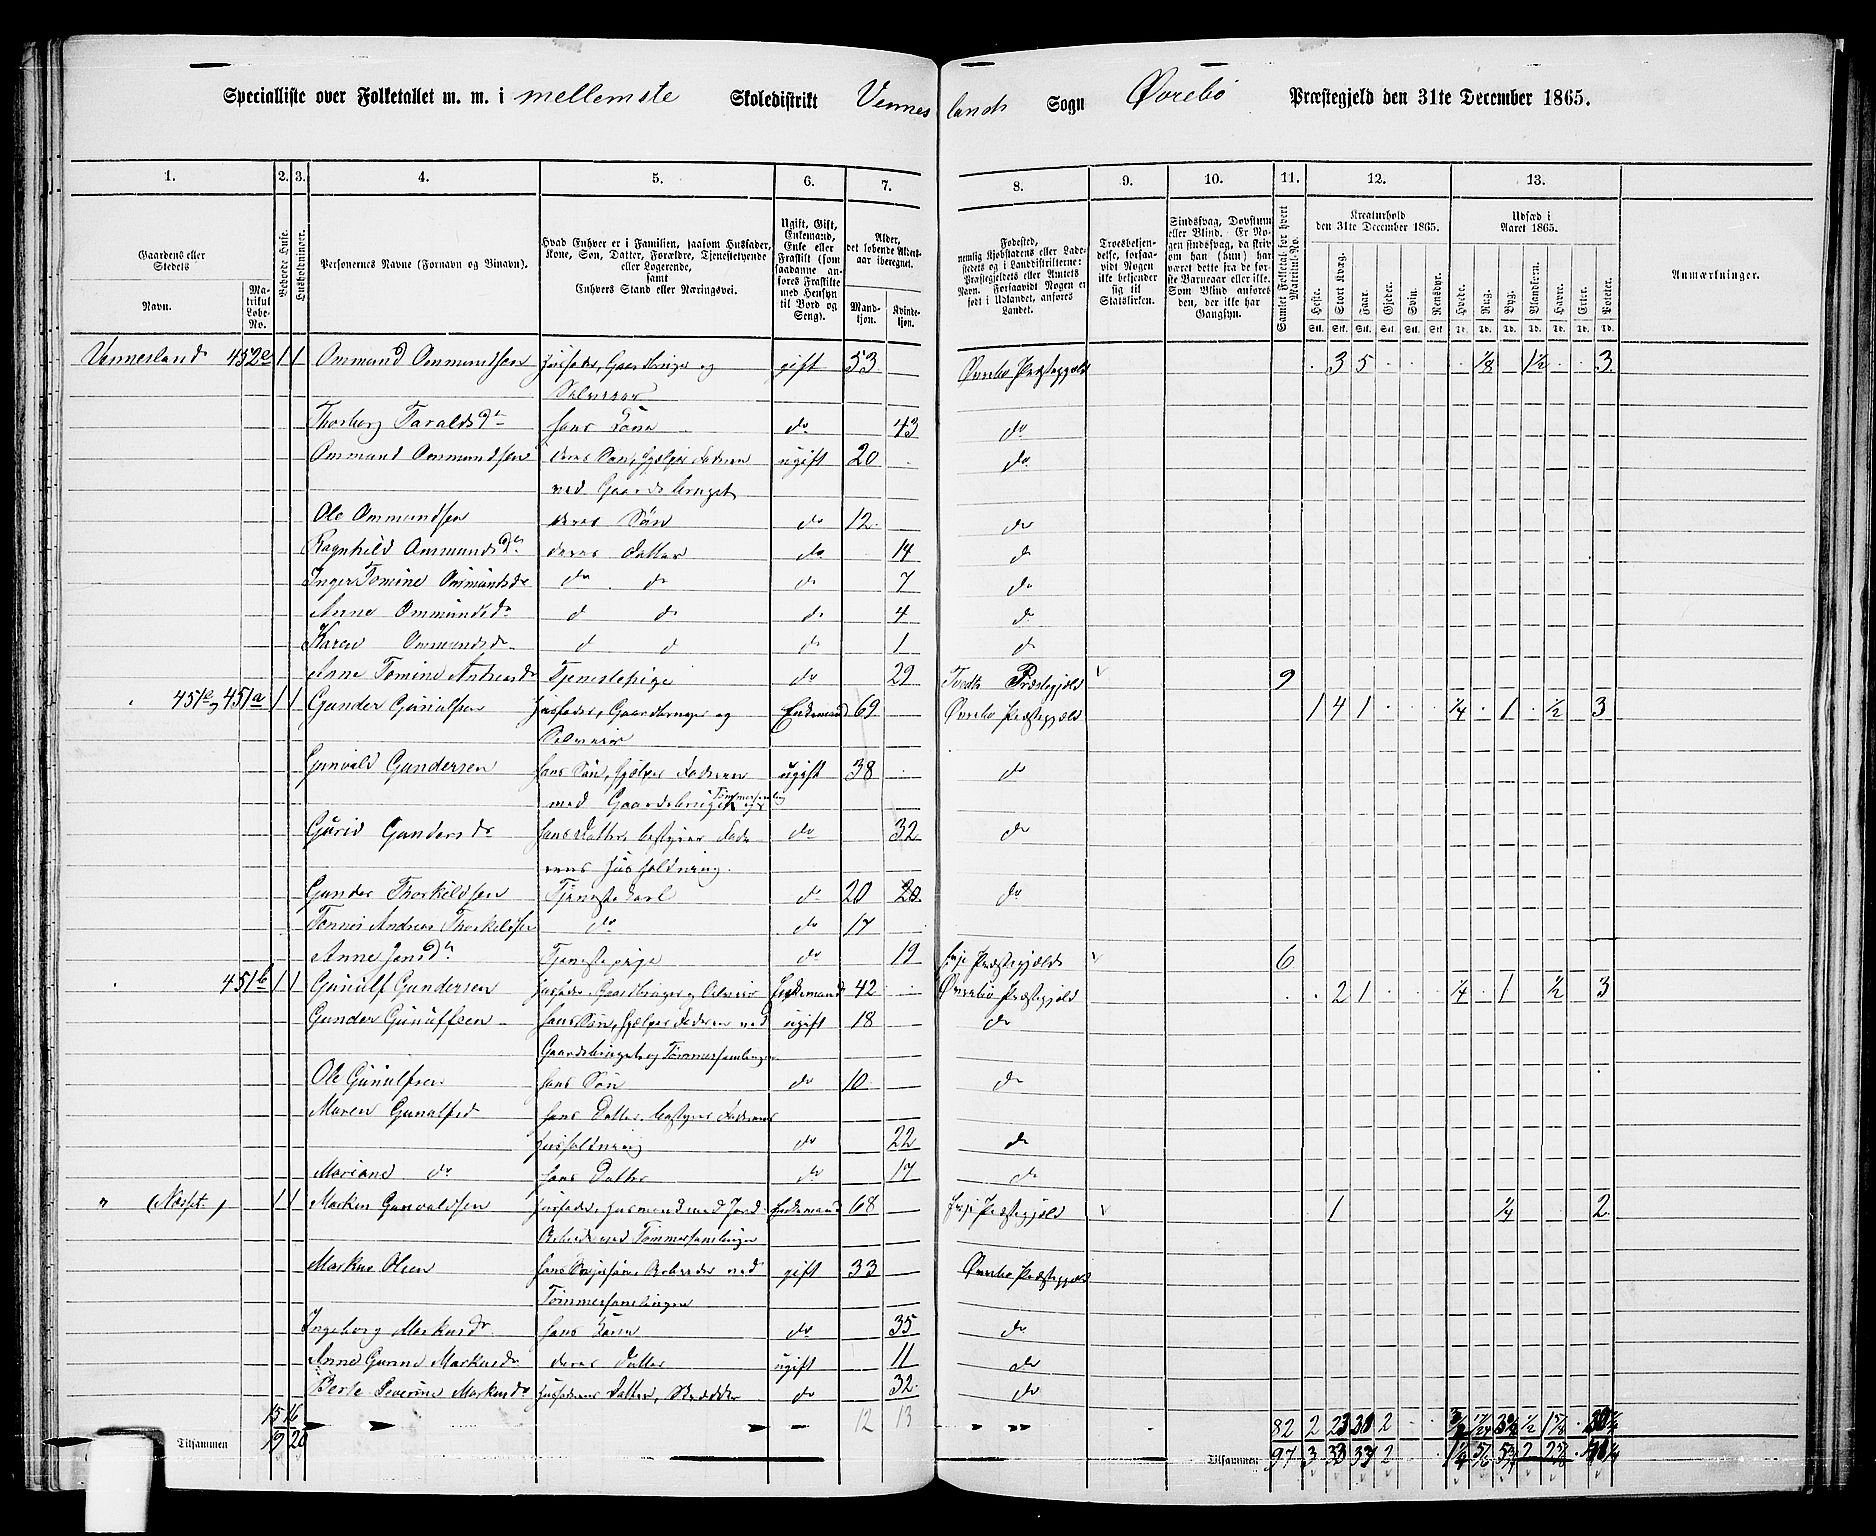 Specialliste over Folketallet m. m. i mellemste Skoledistrikt Vennes lands Sogn Øvrebø Præstegjeld den 31te December 1865.
1. 2. 3. 4. 5. 6. 7. 8. 9. 10. 11. 12. 13.
Gaardens eller Stedets
Navn.
Matrikul Løbe-No.
Beboede Huse.
Husholdninger.
Personernes Navne (Fornavn og Binavn).
Hvad Enhver er i Familien, saasom Husfader, Kone, Søn, Datter, Forældre, Tjenestetyende eller Logerende, samt Enhvers Stand eller Næringsvei.
Ugift, Gift, Enkemand, Enke eller Fraskilt (som saadanne anføres Fraskilte med Hensyn til Bord og Seng).
Alder, det løbende Alders-aar iberegnet.
Mandkjøn.
Kvindekjøn.
Fødested, nemlig Kjøbstadens eller Ladestedets og i Landdistrikterne: Præstegjeldets eller Annexets Navn. Forsaavidt Nogen er født i Udlandet, anføres Landet.
Troesbekjendelse, forsaavidt Nogen ikke bekjender sig til Statskirken.
Sindssvag, Døvstum eller Blind. Er Nogen sindssvag, da skriv om han (hun) har været dette fra de første Barneaar eller ikke. Som Blind anføres den, der ikke har Gangsyn.
Samlet Folketal for hvert Matrikul-No.
Kreaturhold den 31te December 1865.
Heste. Stort Kvæg. Faar. Gjeder. Svin. Rensdyr.
Udsæd i Aaret 1865.
Hvede. Rug. Byg. Blandkorn. Havre. Erter. Poteter.
Anmærkninger.
Vennesland 452e 1 1 Ommund Ommundsen Husfader, Gaardbruger og gift 53 Øvrebø Præstegjeld 3 5 1/8 1½ 3
Selveier
Thorborg Taraldsdr hans Kone do 43 do
Ommund Ommundsen deres Søn, hjælper Faderen ugift 20 do
med Gaardsbruget
Ole Ommundsen deres Søn do 12 do
Ragnhild Ommundsdr deres Datter do 14 do
Inger Tomine Ommundsdr do do do 7 do
Anne Ommundsdr do do do 4 do
Karen Ommundsdr do do do 1 do
Anne Tomine Andreasdr Tjenestepige do 29 Tveds Præstegjeld 9
451a 1 1 Gunder Gunulfsen Husfader, Gaardbruger og Enkemand 69 Øvrebø Præstegjeld 1 4 1 ¼ 1 ½ 3
Selveier
Gunvald Gundersen hans Søn, hjælper Faderen ugift 38 do
med Gaardsbruget og Tømmersamling
Gurid Gundersdr hans Datter, bestyrer Fade do 32 do
rens Husholdning
Gunder Thorkildsen Tjenestekarl do 20 20 do
Tønnes Andreas Thorkildsen do do 17
Anne Jensdr Tjenestepige do 19 Evje Præstegjeld 6
451b 1 1 Gunulf Gundersen Husfader, Gaardbruger og Selveier Enkemand 42 Øvrebø Præstegjeld 2 1 ¼ 1 ½ 3
Gunder Gunulfsen hans Søn, hjælper Faderen ved ugift 18 do
Gaardsbruget og Tømmersamlingen
Ole Gunulfsen hans Søn do 10 do
Maren Gunulfsd hans Datter, bestyrer Faderens
Husholdning do 22 do
Mariane do hans Datter do 17 do
" (Næset) 1 1 Markus Gunvaldsen Husfader, Husmand med Jord Enkemand 68 Evje Præstegjeld 1 ¼ 2
Arbeide ved Tømmersamlingen
Markus Olsen hans Svigersøn, Arbeider ved gift 33 Øvrebø Præstegjeld
Tømmersamlingen
Ingeborg Markusdr hans Kone do 35 do
Anne Gurine Markusdr deres Datter ugift 11 do
Berte Severine Markusdr Husfaderens Datter, do 32 do
15 16 12 13 82 2 23 2 ½
Tilsammen 19 20 Tilsammen 97 3 33 33 2 2